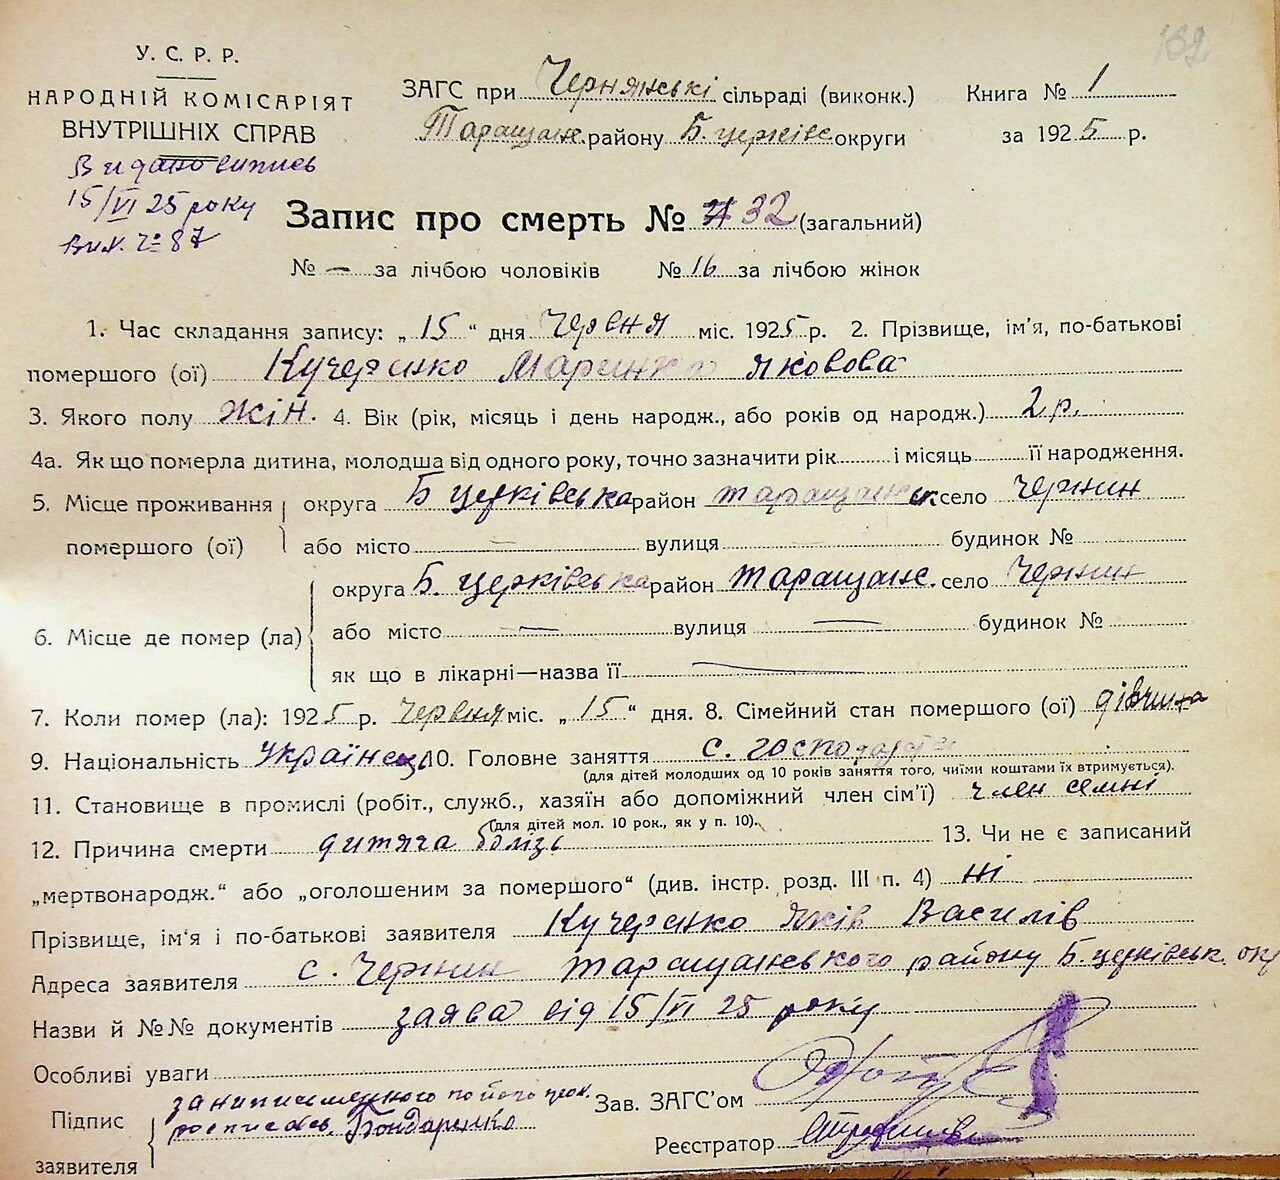 162
У. С. Р. Р.
НАРОДНІЙ КОМІСАРІЯТ
ВНУТРІШНІХ СПРАВ
Видано випись
15/VI 25 року
Вих. № 87
ЗАГС при Чернянські сільраді (виконк.)
Таращанс. району Б. церківс округи
Книга № 1
за 1925 р.
Запис про смерть № 32 (загальний)
№ — за лічбою чоловіків № 16 за лічбою жінок
1. Час складання запису: „15“ дня Червня міс. 1925 р. 2. Прізвище, ім’я, по-батькові
помершого (ої) Кучеренко Маринка Яковова
3. Якого полу жін. 4. Вік (рік, місяць і день народж., або років од народж.) 2 р.
4а. Як що померла дитина, молодша від одного року, точно зазначити рік і місяць її народження.
5. Місце проживання помершого (ої)
округа Б церківська район таращанськ село Чернин
або місто — вулиця — будинок №
6. Місце де помер (ла)
округа Б. церківська район таращанс. село Чернин
або місто — вулиця — будинок №
як що в лікарні—назва її —
7. Коли помер (ла): 1925 р. Червня міс. „15“ дня. 8. Сімейний стан помершого (ої) дівчина
9. Національність Українец 10. Головне заняття с. господарство
(для дітей молодших од 10 років заняття того, чиїми коштами їх втримується).
11. Становище в промислі (робіт., служб., хазяїн або допоміжний член сім’ї) член семні
(для дітей мол. 10 рок., як у п. 10).
12. Причина смерти дитяча болізь 13. Чи не є записаний
„мертвонародж.“ або „оголошеним за помершого“ (див. інстр. розд. III п. 4) ні
Прізвище, ім’я і по-батькові заявителя Кучеренко Яків Василів
Адреса заявителя с. Чернин таращанського району Б. церківськ. окр
Назви й №№ документів заява від 15/VI 25 року
Особливі уваги
Підпис заявителя
за неписьменного по його прох.
росписавсь Бондаренко
Зав. ЗАГС’ом
Реєстратор